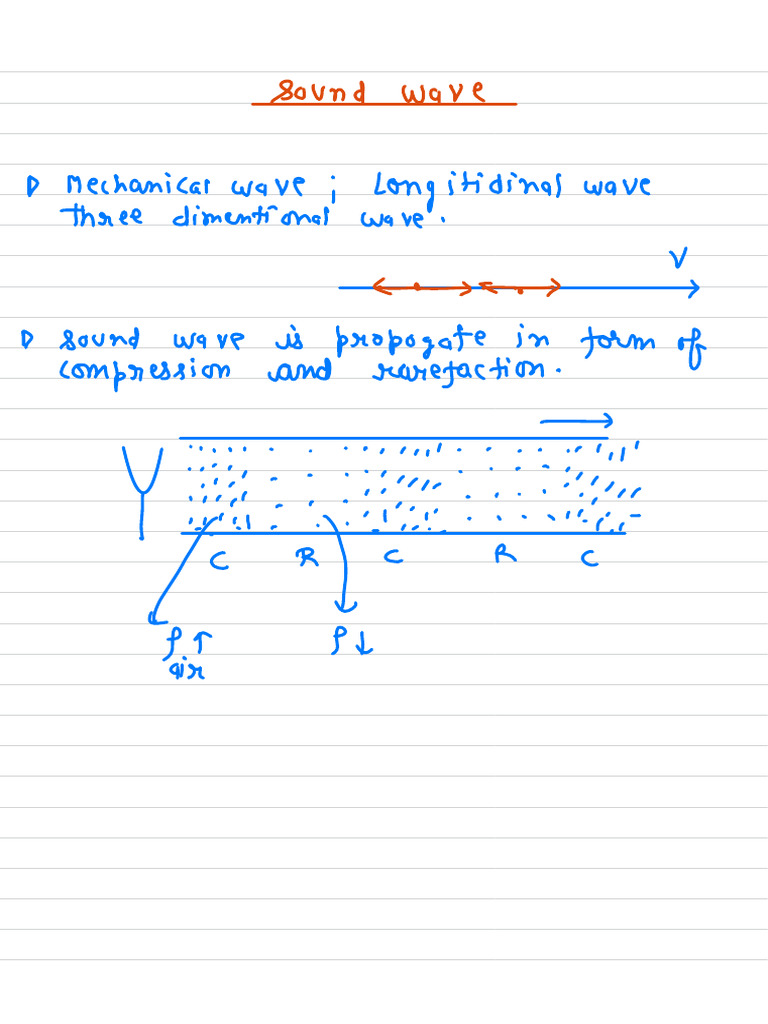 Sound wave
Mechanical wave; Longitidinal wave
three dimentional wave.
V
Sound wave is propogate in form of
compression and rarefaction.
C R C R C
ρ↑ ρ↓
air